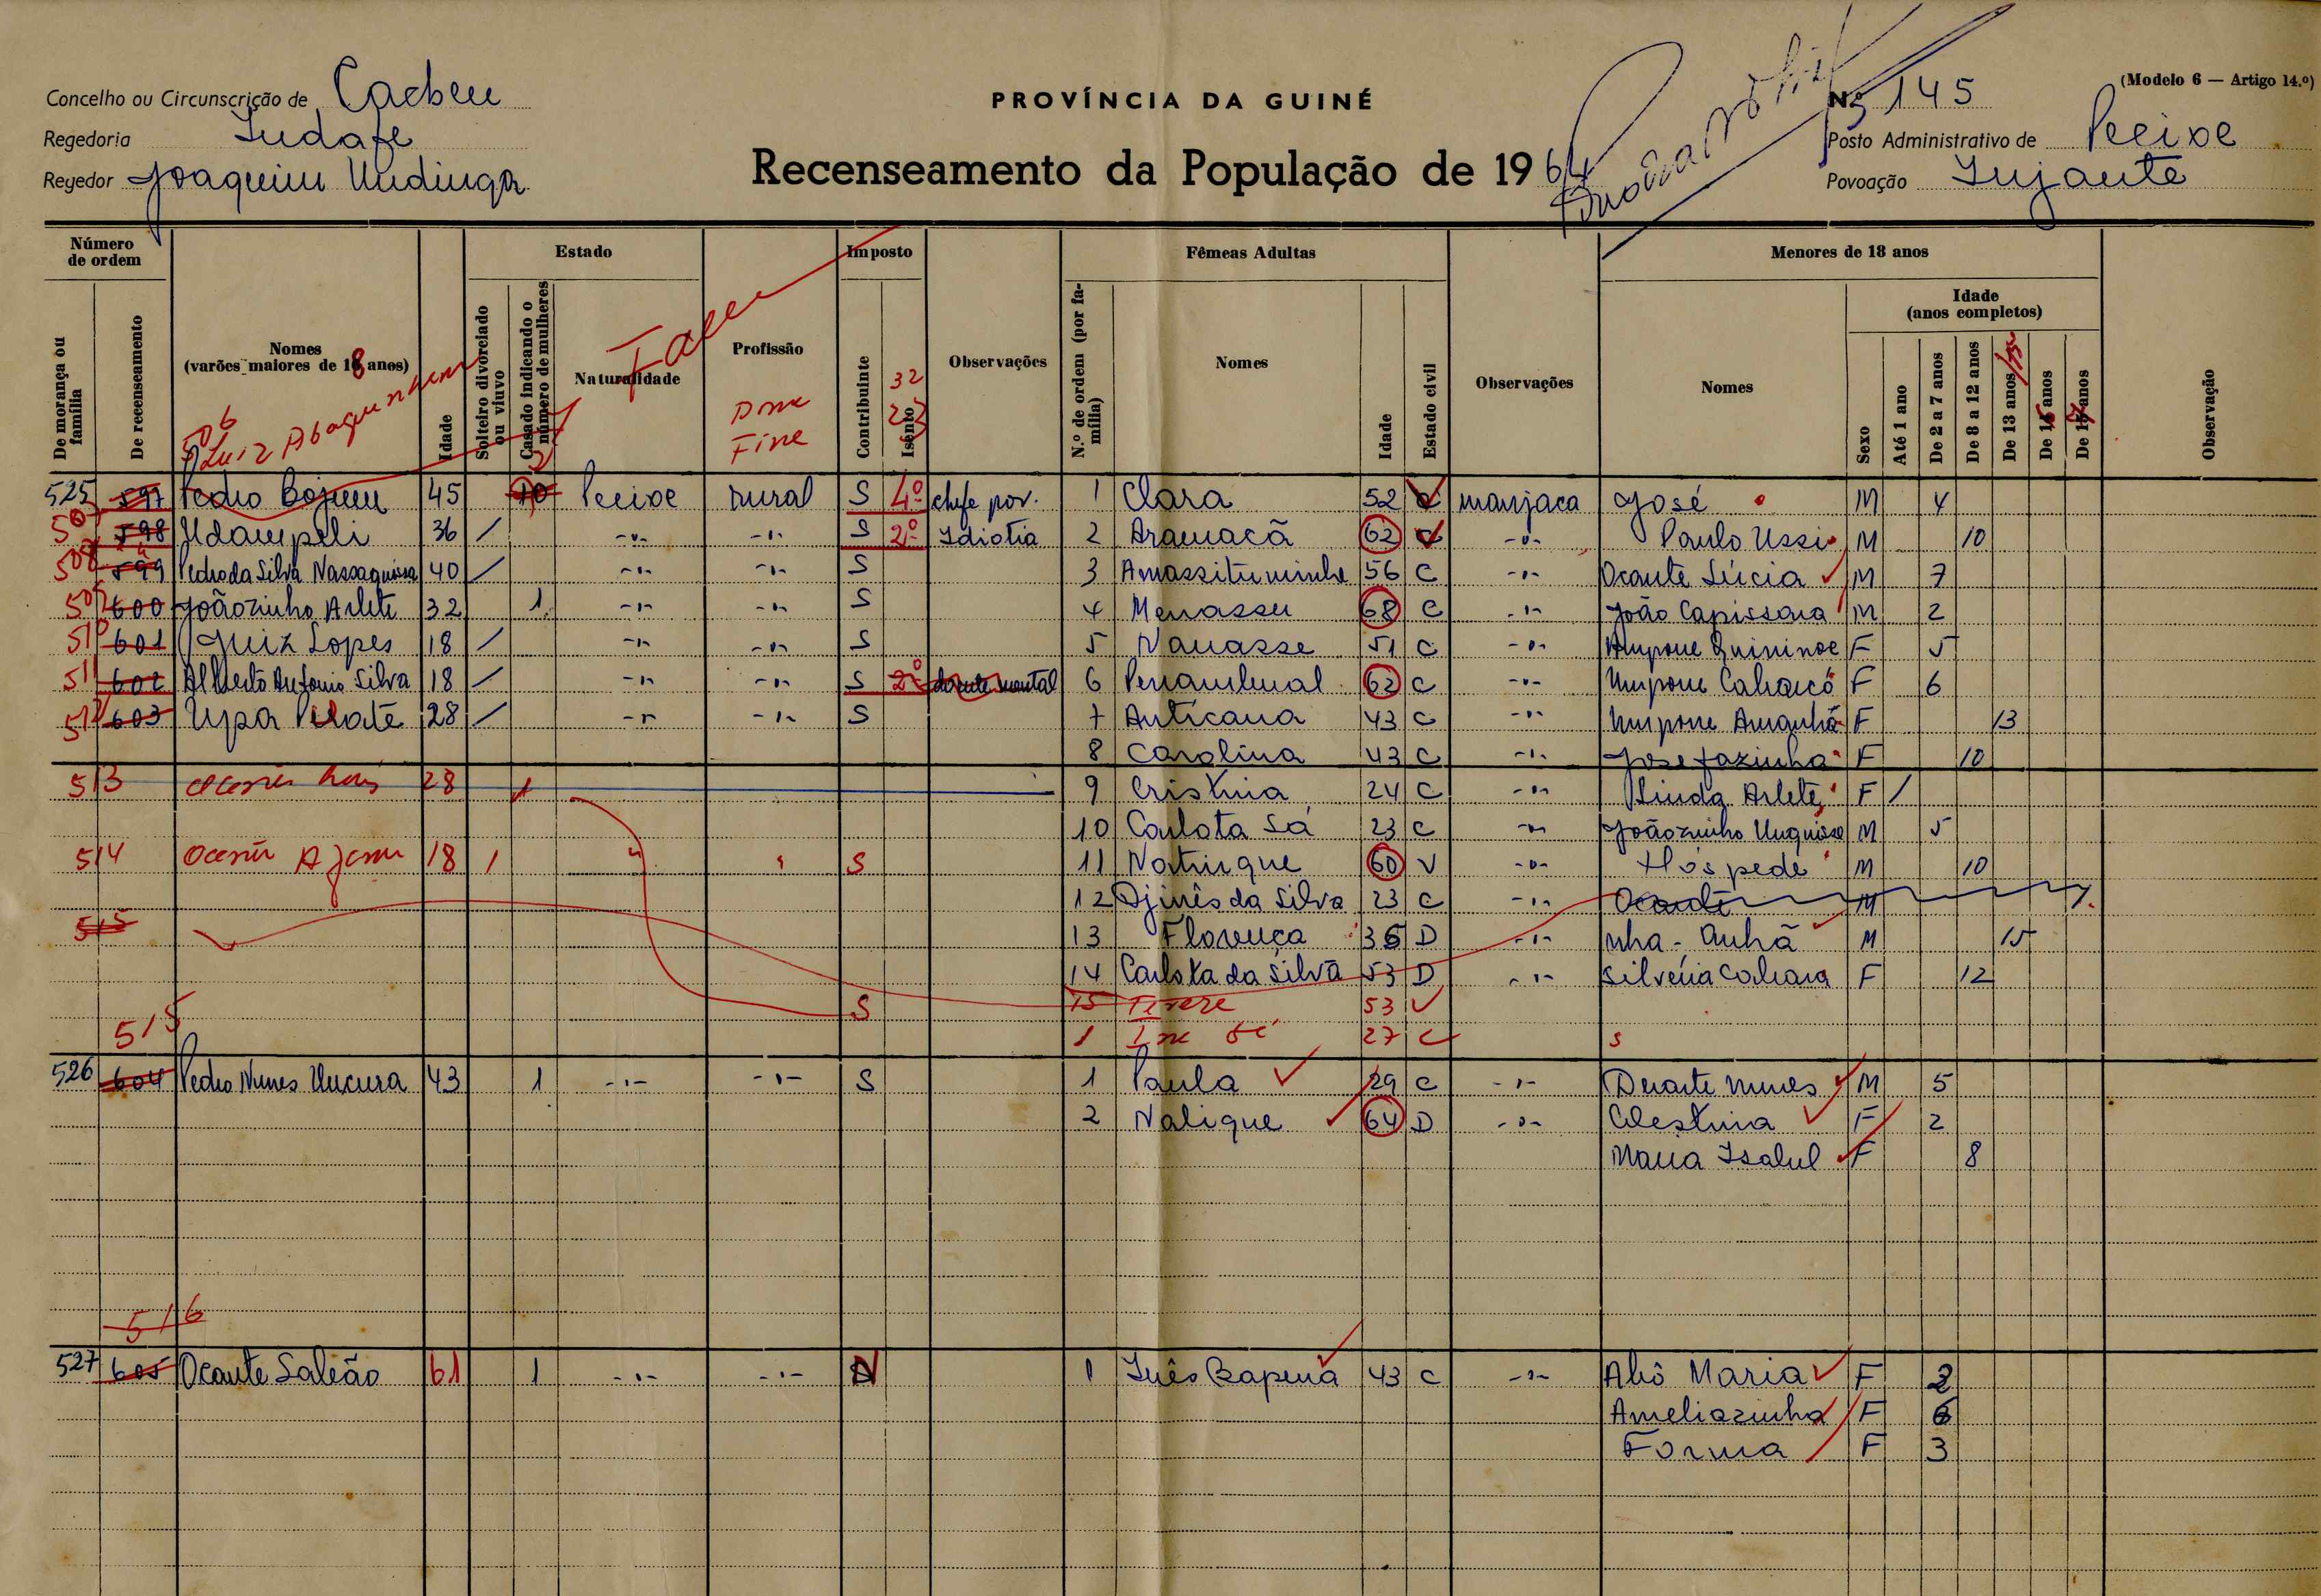 Concelho ou Circunscrição de Cacheu
Regedoria Indafe
Regedor Joaquim Undinga
PROVÍNCIA DA GUINÉ
Recenseamento da População de 1964
(Modelo 6 — Artigo 14.º)
N.º 145
Posto Administrativo de Pecixe
Povoação Injante
Número de ordem
De morança ou família
De recenseamento
Nomes (varões maiores de 18 anos)
Idade
Estado
Solteiro divorciado ou viuvo
Casado indicando o número de mulheres
Naturalidade
Profissão
Imposto
Contribuinte
Isento
Observações
Fêmeas Adultas
N.º de ordem (por família)
Nomes
Idade
Estado civil
Observações
Menores de 18 anos
Nomes
Sexo
Idade (anos completos)
Até 1 ano
De 2 a 7 anos
De 8 a 12 anos
De 13 anos
De 15 anos
anos
Observação
506
Luiz
32
23
525 597 Pedro 45 10 Pecixe rural S 4º chefe pov. 1 Clara 52 C manjaca José M 4
507 598 Udampili 36 / -"- -"- S 2º Idiotia 2 Aramacã 62 C -"- Paulo Ussi M 10
508 599 Pedro da Silva Nassaquissa 40 / -"- -"- S 3 Amassituminhe 56 C -"- Ocante Lúcia M 7
509 600 Joãozinho Arlete 32 1 -"- -"- S 4 Menassu 68 C -"- João Capissana M 2
510 601 Luiz Lopes 18 / -"- -"- S 5 Nanasse 51 C -"- F 5
511 602 Alberto Antonio Silva 18 / -"- -"- S 2º doente mental 6 62 C -"- F 6
512 603 Upa 28 / -"- -"- S 7 Anticana 43 C -"- F 13
8 Carolina 43 C -"- Josefazinha F 10
513 28 1 9 Cristina 24 C -"- Linda Arlete F /
10 Carlota Sá 23 C -"- Joãozinho M 5
514 18 / " " S 11 Natinque 60 V -"- Hóspede M 10
12 Djinês da Silva 23 C -"- Ocante M
515 13 Florença 36 D -"- nha-Anhã M 15
14 Carlota da Silva 53 D -"- F 12
S 15 53 V
515 1 27 C
526 604 Pedro Nunes Uncura 43 1 -"- -"- S 1 Paula 29 C -"- Duarte Nunes M 5
2 Nalique 64 D -"- Celestina F 2
Maria Isabel F 8
516
527 605 Ocante Saleão 61 1 -"- -"- N 1 Inês Bapena 43 C -"- Abó Maria F 2
Ameliazinha F 6
Forma F 3